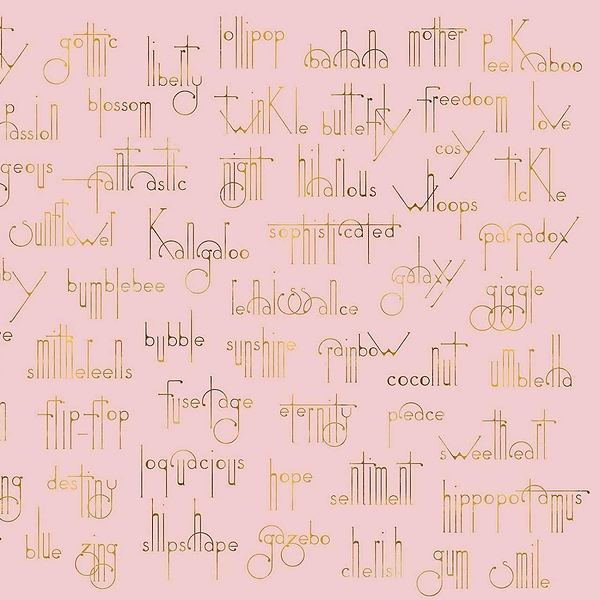 gothic liberty lollipop banana mother peekaboo
passion blossom twinkle butterfly freedom love
geous fantastic night hilarious whoops cosy tickle
sunflower kangaroo sophisticated galaxy paradox
by bumblebee renaissance giggle
smithereens bubble sunshine rainbow coconut umbrella
flip-flop fuselage eternity peace sweetheart
destiny loquacious hope sentiment hippopotamus
blue zing shipshape gazebo cherish gum smile